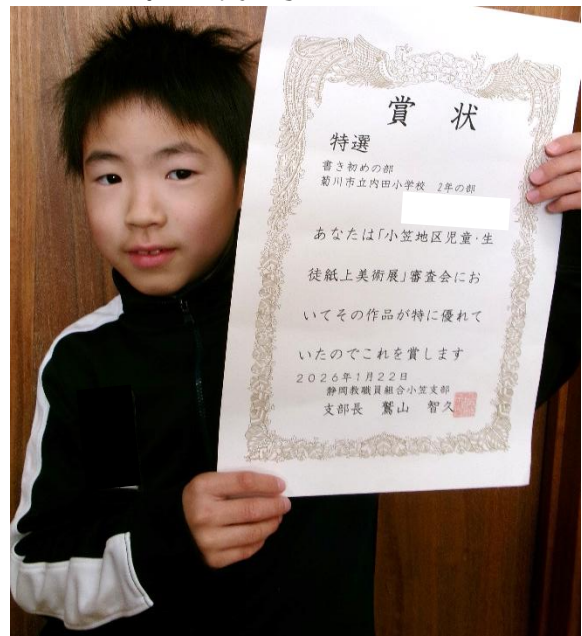 賞状
特選
書き初めの部
菊川市立内田小学校 2年の部
あなたは「小笠地区児童・生
徒紙上美術展」審査会にお
いてその作品が特に優れて
いたのでこれを賞します
2026年1月22日
静岡教職員組合小笠支部
支部長 鷲山 智久